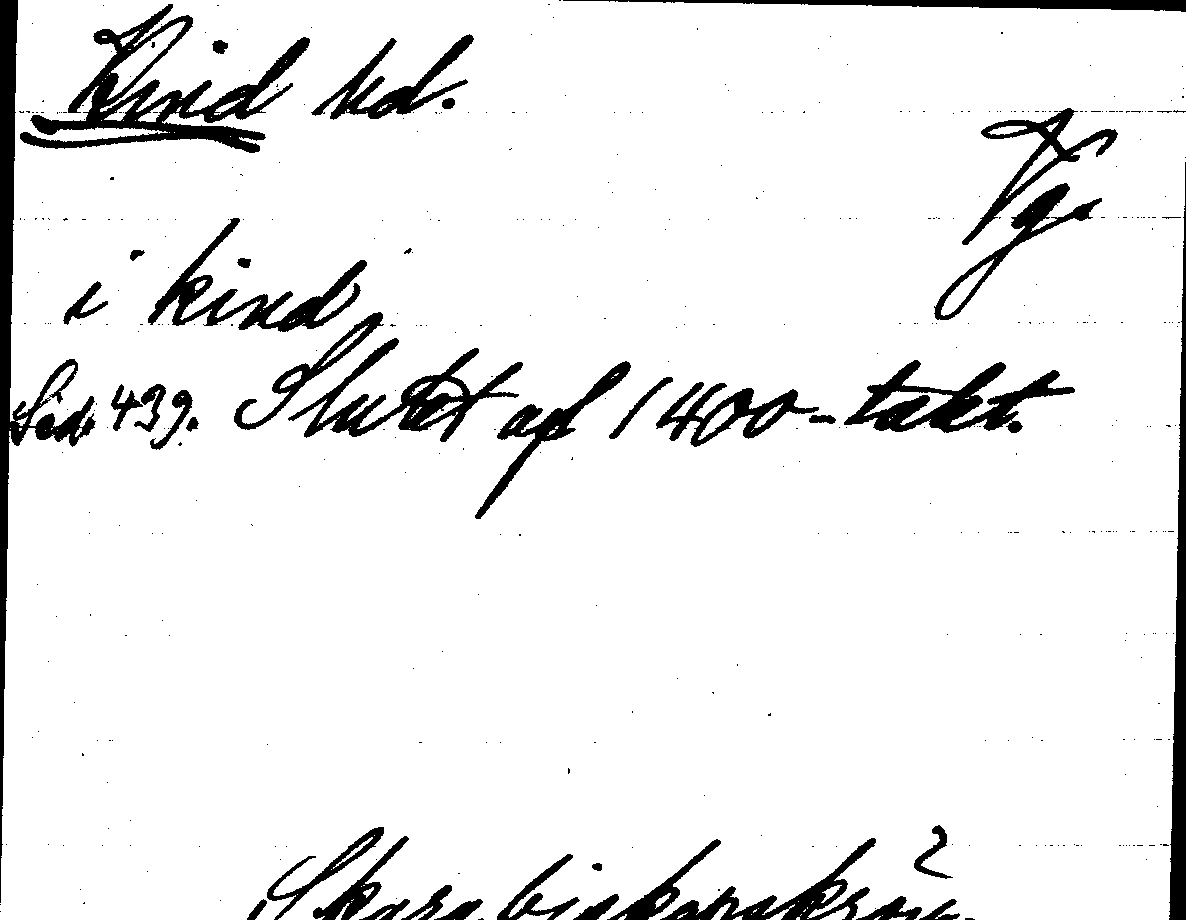 Kind hd.
Vg.
i kind
Sid. 439. Slutet af 1400-talet.
Skara biskopskrön. 2